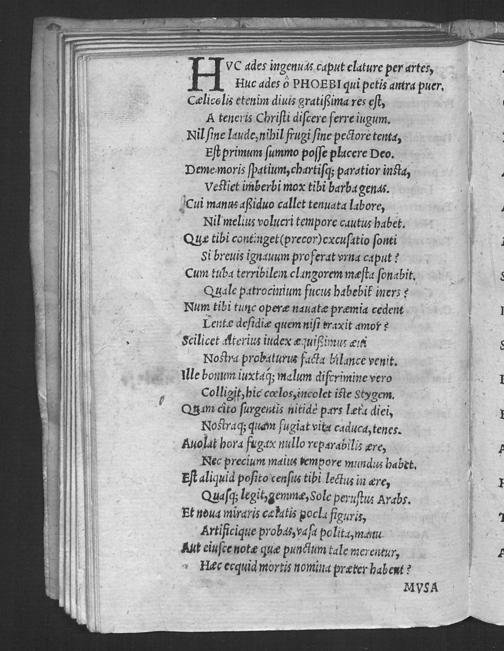 HVC ades ingenuas caput elature per artes,
Huc ades ô PHOEBI qui petis antra puer.
Cælicolis etenim diuis gratißima res est,
A teneris Christi discere ferre iugum.
Nil sine laude, nihil frugi sine pectore tenta,
Est primum summo posse placere Deo.
Deme moris spatium, chartisq; paratior insta,
Vestiet imberbi mox tibi barba genas.
Cui manus aßiduo callet tenuata labore,
Nil melius volucri tempore cautus habet.
Quæ tibi continget (precor) excusatio sonti
Si breuis ignauum proferat vrna caput?
Cum tuba terribilem clangorem mæsta sonabit,
Quale patrocinium fucus habebit iners?
Num tibi tunc operæ nauatæ præmia cedent
Lentæ desidiæ quem nisi traxit amor?
Scilicet alterius iudex æquißimus æui
Nostra probaturus facta bilance venit.
Ille bonum iuxtaq; malum discrimine vero
Colligit, hic cœlos, incolet iste Stygem.
Quam cito surgentis nitidè pars læta diei,
Nostraq; quam fugiat vita caduca, tenes.
Auolat hora fugax nullo reparabilis ære,
Nec precium maius tempore mundus habet.
Est aliquid posito census tibi lectus in ære,
Quasq; legit, gemmæ, Sole perustus Arabs.
Et noua miraris cælatis pocla figuris,
Artificique probas, vasa polita, manu
Aut eiusce notæ quæ punctum tale merentur,
Hæc ecquid mortis nomina præter habent?
MVSA